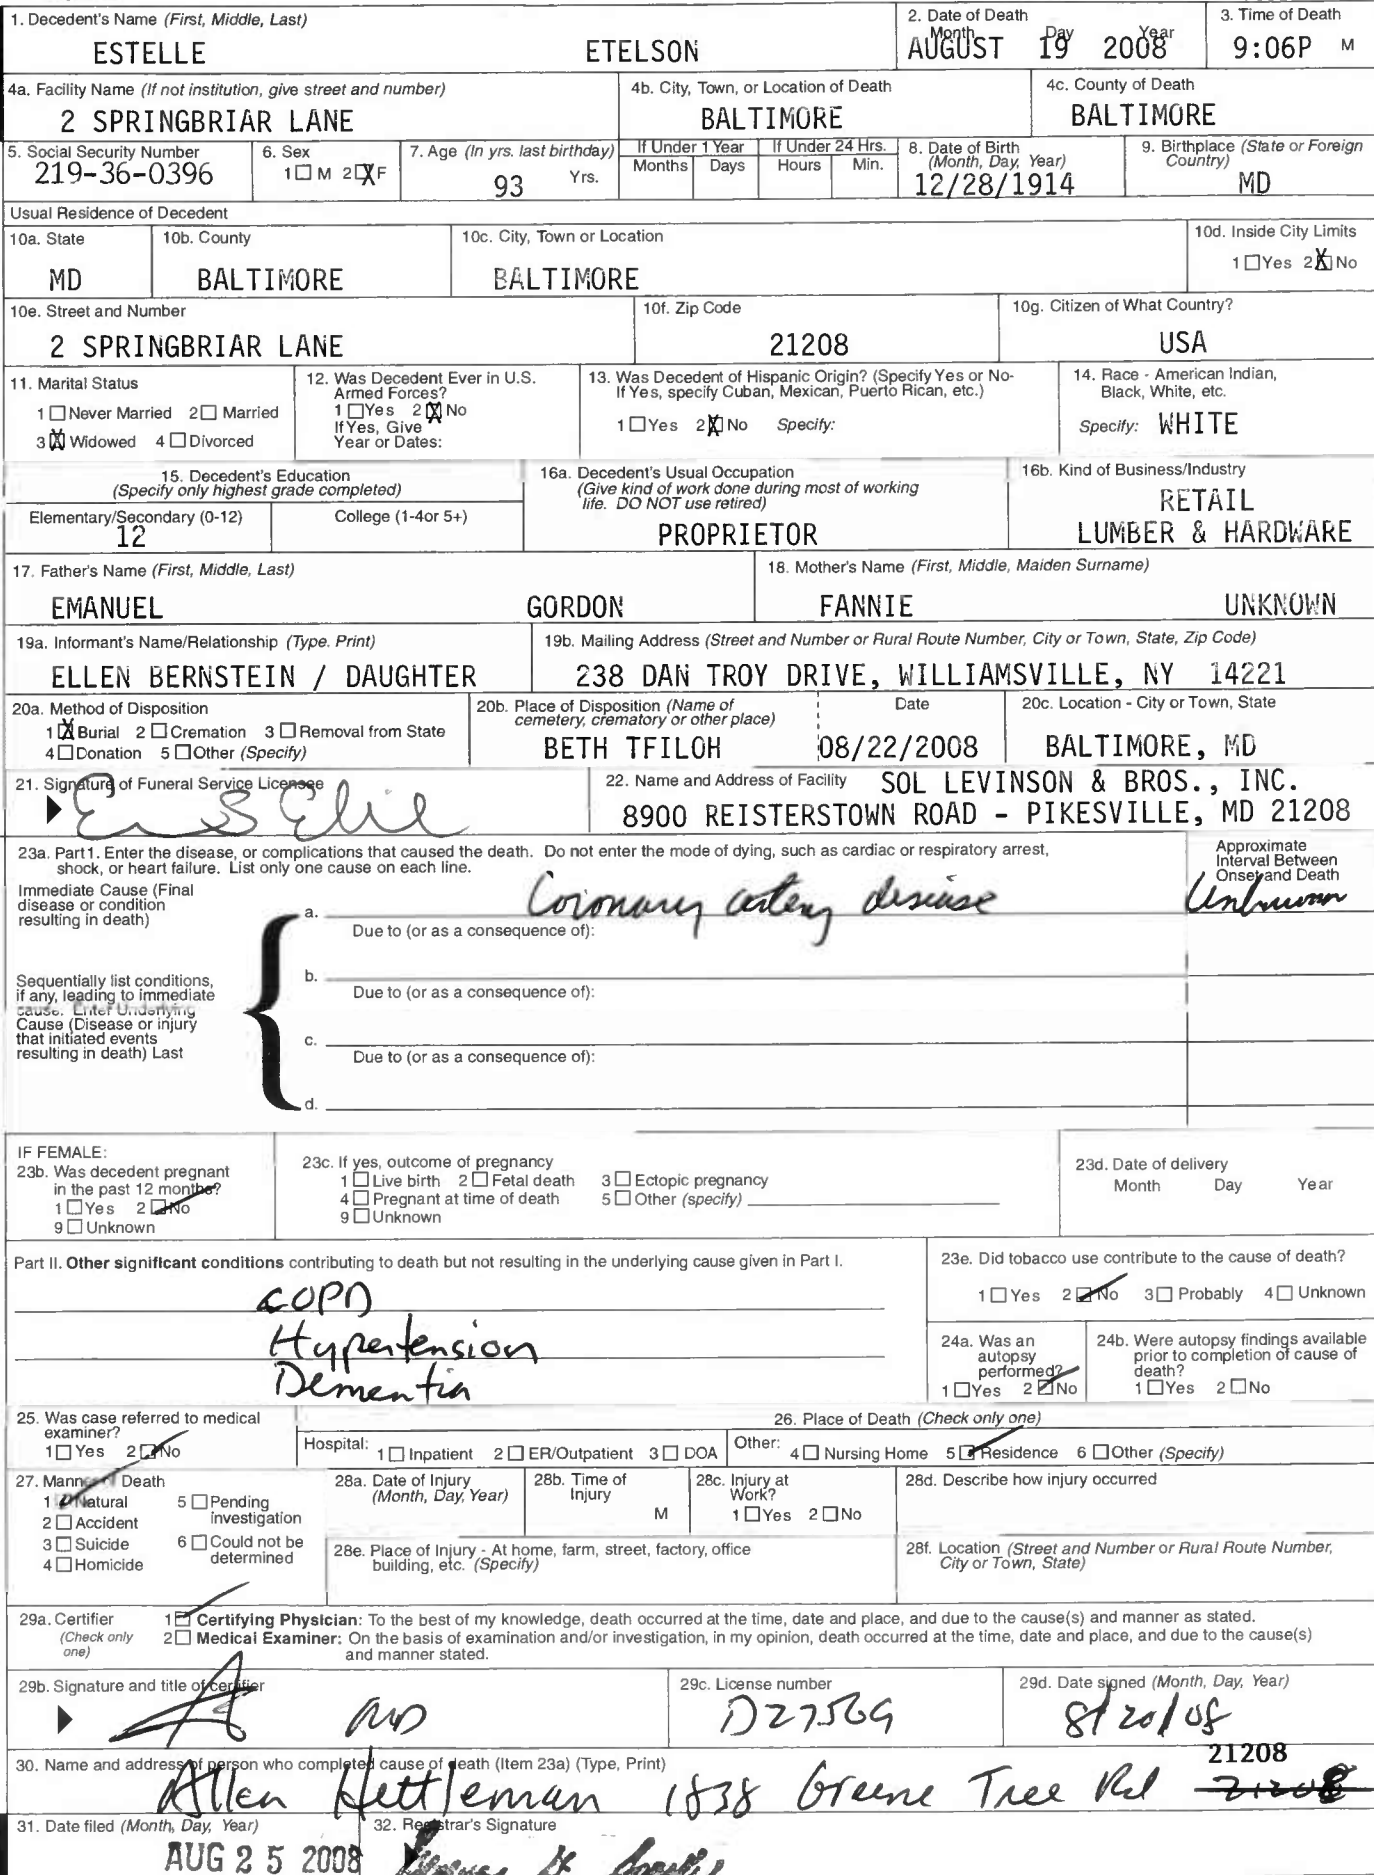 1. Decedent's Name (First, Middle, Last)
ESTELLE ETELSON
2. Date of Death
Month Day Year
AUGUST 19 2008
3. Time of Death
9:06P M
4a. Facility Name (If not institution, give street and number)
2 SPRINGBRIAR LANE
4b. City, Town, or Location of Death
BALTIMORE
4c. County of Death
BALTIMORE
5. Social Security Number
219-36-0396
6. Sex
1 □ M 2 ☒ F
7. Age (In yrs. last birthday)
93 Yrs.
If Under 1 Year
Months Days
If Under 24 Hrs.
Hours Min.
8. Date of Birth
(Month, Day, Year)
12/28/1914
9. Birthplace (State or Foreign
Country)
MD
Usual Residence of Decedent
10a. State
MD
10b. County
BALTIMORE
10c. City, Town or Location
BALTIMORE
10d. Inside City Limits
1 □ Yes 2 ☒ No
10e. Street and Number
2 SPRINGBRIAR LANE
10f. Zip Code
21208
10g. Citizen of What Country?
USA
11. Marital Status
1 □ Never Married 2 □ Married
3 ☒ Widowed 4 □ Divorced
12. Was Decedent Ever in U.S.
Armed Forces?
1 □ Yes 2 ☒ No
If Yes, Give
Year or Dates:
13. Was Decedent of Hispanic Origin? (Specify Yes or No-
If Yes, specify Cuban, Mexican, Puerto Rican, etc.)
1 □ Yes 2 ☒ No Specify:
14. Race - American Indian,
Black, White, etc.
Specify: WHITE
15. Decedent's Education
(Specify only highest grade completed)
Elementary/Secondary (0-12)
12
College (1-4or 5+)
16a. Decedent's Usual Occupation
(Give kind of work done during most of working
life. DO NOT use retired)
PROPRIETOR
16b. Kind of Business/Industry
RETAIL
LUMBER & HARDWARE
17. Father's Name (First, Middle, Last)
EMANUEL GORDON
18. Mother's Name (First, Middle, Maiden Surname)
FANNIE UNKNOWN
19a. Informant's Name/Relationship (Type. Print)
ELLEN BERNSTEIN / DAUGHTER
19b. Mailing Address (Street and Number or Rural Route Number, City or Town, State, Zip Code)
238 DAN TROY DRIVE, WILLIAMSVILLE, NY 14221
20a. Method of Disposition
1 ☒ Burial 2 □ Cremation 3 □ Removal from State
4 □ Donation 5 □ Other (Specify)
20b. Place of Disposition (Name of
cemetery, crematory or other place)
BETH TFILOH
Date
08/22/2008
20c. Location - City or Town, State
BALTIMORE, MD
21. Signature of Funeral Service Licensee
22. Name and Address of Facility SOL LEVINSON & BROS., INC.
8900 REISTERSTOWN ROAD - PIKESVILLE, MD 21208
23a. Part1. Enter the disease, or complications that caused the death. Do not enter the mode of dying, such as cardiac or respiratory arrest,
shock, or heart failure. List only one cause on each line.
Approximate
Interval Between
Onset and Death
Immediate Cause (Final
disease or condition
resulting in death)
a. Coronary artery disease Unknown
Due to (or as a consequence of):
Sequentially list conditions,
if any, leading to immediate
cause. Enter Underlying
Cause (Disease or injury
that initiated events
resulting in death) Last
b.
Due to (or as a consequence of):
c.
Due to (or as a consequence of):
d.
IF FEMALE:
23b. Was decedent pregnant
in the past 12 months?
1 □ Yes 2 ☑ No
9 □ Unknown
23c. If yes, outcome of pregnancy
1 □ Live birth 2 □ Fetal death 3 □ Ectopic pregnancy
4 □ Pregnant at time of death 5 □ Other (specify)
9 □ Unknown
23d. Date of delivery
Month Day Year
Part II. Other significant conditions contributing to death but not resulting in the underlying cause given in Part I.
COPD
Hypertension
Dementia
23e. Did tobacco use contribute to the cause of death?
1 □ Yes 2 ☑ No 3 □ Probably 4 □ Unknown
24a. Was an
autopsy
performed?
1 □ Yes 2 ☑ No
24b. Were autopsy findings available
prior to completion of cause of
death?
1 □ Yes 2 □ No
25. Was case referred to medical
examiner?
1 □ Yes 2 ☑ No
26. Place of Death (Check only one)
Hospital: 1 □ Inpatient 2 □ ER/Outpatient 3 □ DOA
Other: 4 □ Nursing Home 5 ☑ Residence 6 □ Other (Specify)
27. Manner of Death
1 ☑ Natural 5 □ Pending
investigation
2 □ Accident
3 □ Suicide 6 □ Could not be
determined
4 □ Homicide
28a. Date of Injury
(Month, Day, Year)
28b. Time of
Injury
M
28c. Injury at
Work?
1 □ Yes 2 □ No
28d. Describe how injury occurred
28e. Place of Injury - At home, farm, street, factory, office
building, etc. (Specify)
28f. Location (Street and Number or Rural Route Number,
City or Town, State)
29a. Certifier
(Check only
one)
1 ☑ Certifying Physician: To the best of my knowledge, death occurred at the time, date and place, and due to the cause(s) and manner as stated.
2 □ Medical Examiner: On the basis of examination and/or investigation, in my opinion, death occurred at the time, date and place, and due to the cause(s)
and manner stated.
29b. Signature and title of certifier
MD
29c. License number
D27569
29d. Date signed (Month, Day, Year)
8/20/08
30. Name and address of person who completed cause of death (Item 23a) (Type, Print)
21208
Allen Hettleman 1838 Greene Tree Rd 21208
31. Date filed (Month, Day, Year)
AUG 25 2008
32. Registrar's Signature